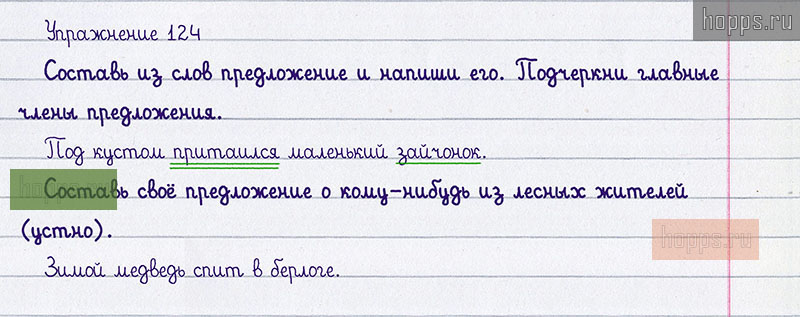 hopps.ru
Упражнение 124
Составь из слов предложение и напиши его. Подчеркни главные
члены предложения.
Под кустом притаился маленький зайчонок.
Составь своё предложение о кому-нибудь из лесных жителей
(устно).
hopps.ru
Зимой медведь спит в берлоге.